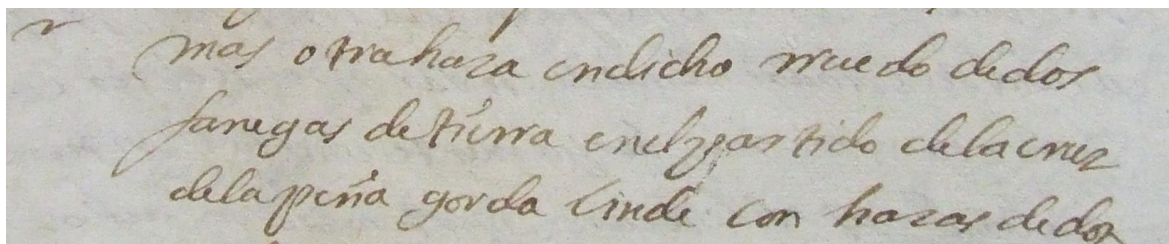 mas otra haza en dicho rruedo de dos
fanegas de tierra en el partido de la cruz
de la peña gorda linde con hazas de dos